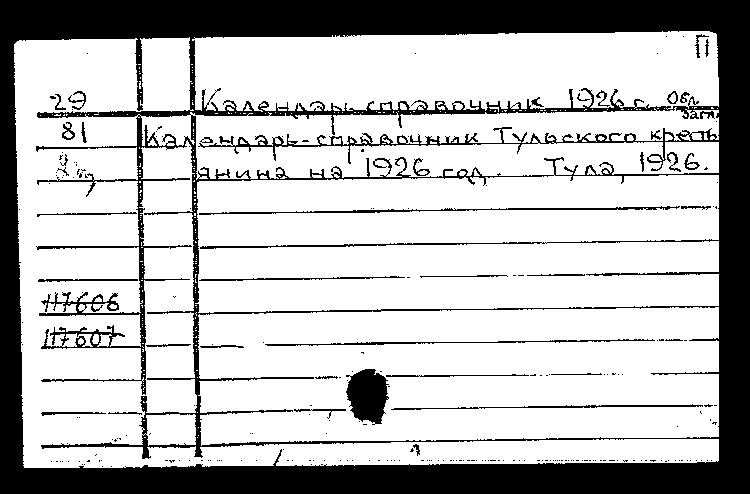 П
29 Календарь-справочник 1926 г. Обл.
загл.
81 Календарь-справочник Тульского кресть
янина на 1926 год. Тула, 1926.
117606
117607